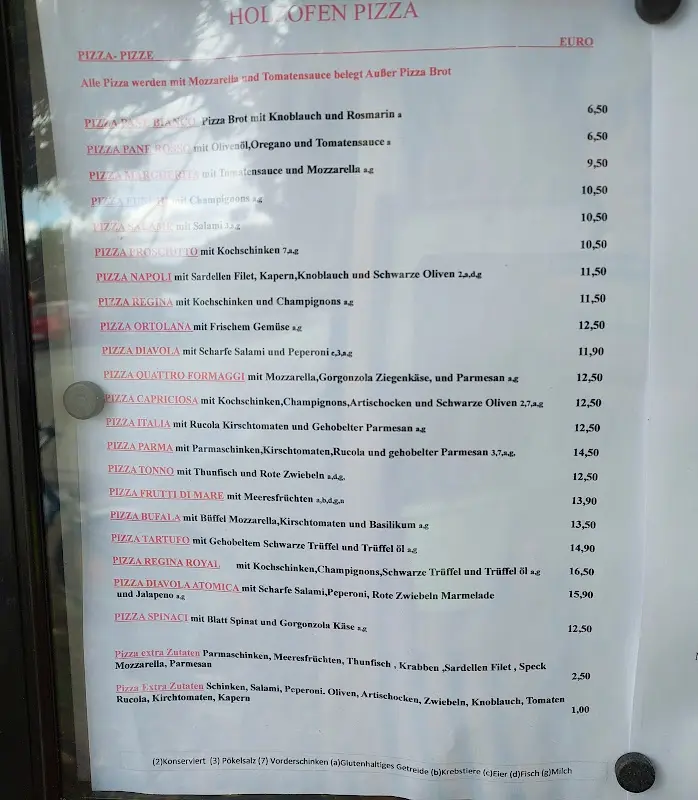 HOLZOFEN PIZZA
PIZZA- PIZZE EURO
Alle Pizza werden mit Mozzarella und Tomatensauce belegt Außer Pizza Brot
PIZZA PANE BIANCO Pizza Brot mit Knoblauch und Rosmarin a 6,50
PIZZA PANE ROSSO mit Olivenöl,Oregano und Tomatensauce a 6,50
PIZZA MARGHERITA mit Tomatensauce und Mozzarella a,g 9,50
PIZZA FUNGHI mit Champignons a,g 10,50
PIZZA SALAME mit Salami 3,a,g 10,50
PIZZA PROSCIUTTO mit Kochschinken 7,a,g 10,50
PIZZA NAPOLI mit Sardellen Filet, Kapern,Knoblauch und Schwarze Oliven 2,a,d,g 11,50
PIZZA REGINA mit Kochschinken und Champignons a,g 11,50
PIZZA ORTOLANA mit Frischem Gemüse a,g 12,50
PIZZA DIAVOLA mit Scharfe Salami und Peperoni c,3,a,g 11,90
PIZZA QUATTRO FORMAGGI mit Mozzarella,Gorgonzola Ziegenkäse, und Parmesan a,g 12,50
PIZZA CAPRICIOSA mit Kochschinken,Champignons,Artischocken und Schwarze Oliven 2,7,a,g 12,50
PIZZA ITALIA mit Rucola Kirschtomaten und Gehobelter Parmesan a,g 12,50
PIZZA PARMA mit Parmaschinken,Kirschtomaten,Rucola und gehobelter Parmesan 3,7,a,g, 14,50
PIZZA TONNO mit Thunfisch und Rote Zwiebeln a,d,g, 12,50
PIZZA FRUTTI DI MARE mit Meeresfrüchten a,b,d,g,n 13,90
PIZZA BUFALA mit Büffel Mozzarella,Kirschtomaten und Basilikum a,g 13,50
PIZZA TARTUFO mit Gehobeltem Schwarze Trüffel und Trüffel öl a,g 14,90
PIZZA REGINA ROYAL mit Kochschinken,Champignons,Schwarze Trüffel und Trüffel öl a,g 16,50
PIZZA DIAVOLA ATOMICA mit Scharfe Salami,Peperoni, Rote Zwiebeln Marmelade
und Jalapeno a,g 15,90
PIZZA SPINACI mit Blatt Spinat und Gorgonzola Käse a,g 12,50
Pizza extra Zutaten Parmaschinken, Meeresfrüchten, Thunfisch , Krabben ,Sardellen Filet , Speck
Mozzarella, Parmesan 2,50
Pizza Extra Zutaten Schinken, Salami, Peperoni. Oliven, Artischocken, Zwiebeln, Knoblauch, Tomaten
Rucola, Kirchtomaten, Kapern 1,00
(2)Konserviert (3) Pökelsalz (7) Vorderschinken (a)Glutenhaltiges Getreide (b)Krebstiere (c)Eier (d)Fisch (g)Milch